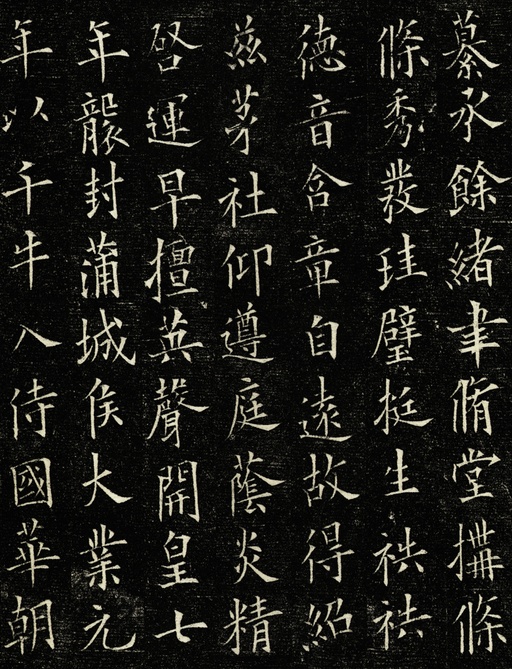 纂承餘緒聿脩堂搆條
條秀發珪璧挺生祑祑
德音含章自遠故得紹
茲茅社仰遵庭蔭炎精
啓運早擅英聲開皇七
年襲封蒲城侯大業元
年以千牛入侍國華朝